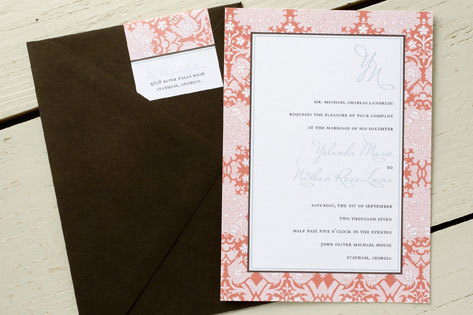 5718 RIVER FALLS ROAD
STATHAM, GEORGIA
YN
MR. MICHAEL CHARLES LANDREAU
REQUESTS THE PLEASURE OF YOUR COMPANY
AT THE MARRIAGE OF HIS DAUGHTER
Yolanda Marie
TO
Nathan Ross Lucas
SATURDAY, THE 1ST OF SEPTEMBER
TWO THOUSAND SEVEN
HALF PAST FIVE O'CLOCK IN THE EVENING
JOHN OLIVER MICHAEL HOUSE
STATHAM, GEORGIA